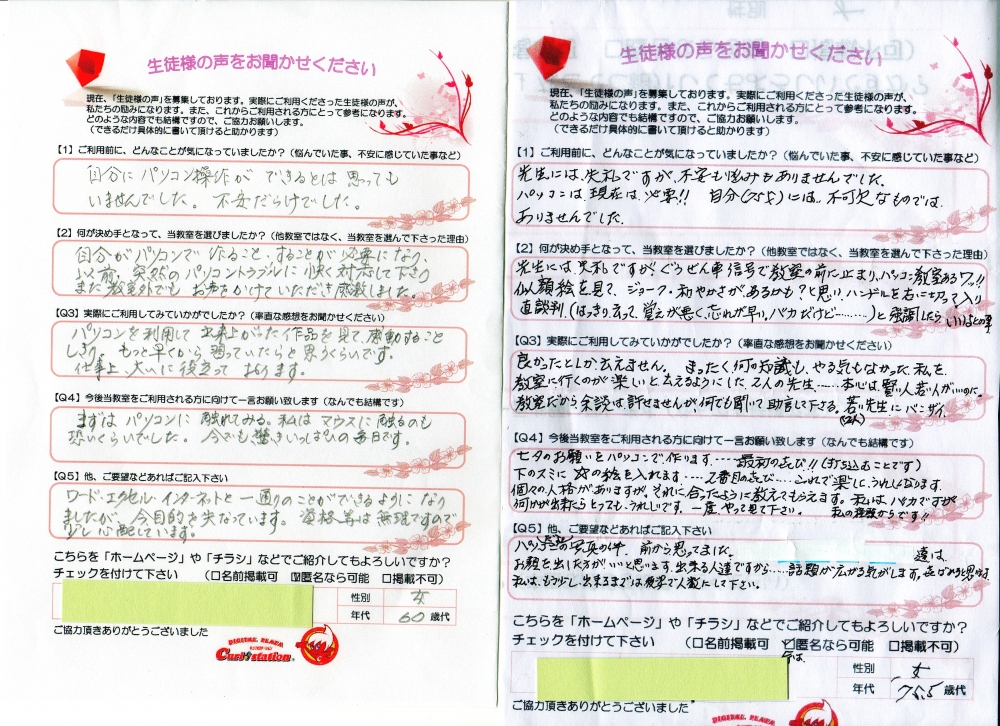 生徒様の声をお聞かせください
現在、「生徒様の声」を募集しております。実際にご利用くださった生徒様の声が、
私たちの励みになります。また、これからご利用される方にとって参考になります。
どのような内容でも結構ですので、ご協力お願いします。
（できるだけ具体的に書いて頂けると助かります）
【1】ご利用前に、どんなことが気になっていましたか？（悩んでいた事、不安に感じていた事など）
自分にパソコン操作ができるとは思っても
いませんでした。不安だらけでした。
【2】何が決め手となって、当教室を選びましたか？（他教室ではなく、当教室を選んで下さった理由）
自分がパソコンで作ること、することが必要になり
以前、突然のパソコントラブルに快く対応して下さり
また教室外でもお声をかけていただき感激しました。
【Q3】実際にご利用してみていかがでしたか？（率直な感想をお聞かせください）
パソコンを利用して出来上がった作品を見て、感動すること
しきり。もっと早くから習っていたらと思うくらいです。
仕事上、大いに役立っております。
【Q4】今後当教室をご利用される方に向けて一言お願い致します（なんでも結構です）
まずはパソコンに触れてみる。私はマウスに触るのも
恐いくらいでした。今でも驚きいっぱいの毎日です。
【Q5】他、ご要望などあればご記入下さい
ワード・エクセル・インターネットと一通りのことができるようになり
ましたが、今目的を失なっています。資格等は無理ですので
少し心配しています。
こちらを「ホームページ」や「チラシ」などでご紹介してもよろしいですか？
チェックを付けて下さい （□名前掲載可 ☑匿名なら可能 □掲載不可）
性別 女
年代 60 歳代
ご協力頂きありがとうございました
DIGITAL PLAZA
Curio station
生徒様の声をお聞かせください
現在、「生徒様の声」を募集しております。実際にご利用くださった生徒様の声が、
私たちの励みになります。また、これからご利用される方にとって参考になります。
どのような内容でも結構ですので、ご協力お願いします。
（できるだけ具体的に書いて頂けると助かります）
【1】ご利用前に、どんなことが気になっていましたか？（悩んでいた事、不安に感じていた事など）
先生には、失礼ですが、不安も悩みもありませんでした。
パソコンは、現在は、必要!! 自分(75才)には、不可欠なものでは、
ありませんでした。
【2】何が決め手となって、当教室を選びましたか？（他教室ではなく、当教室を選んで下さった理由）
先生には、失礼ですが、ぐうぜん車信号で教室の前に止まり、パソコン教室あるワ!!
似顔絵を見て、ジョーク・和やかさがあるかも?と思い、ハンドルを右に切って入り
直談判。(はっきり云って、覚えが悪く、忘れが早い。バカだけど………)と強調したら、いいよとの事
【Q3】実際にご利用してみていかがでしたか？（率直な感想をお聞かせください）
良かったとしか云えません。まったく何の知識も、やる気もなかった、私を、
教室に行くのが楽しいと云えるようにした、2人の先生……本心は、賢い人、若い人がいいのに。
教室だから余談は許せませんが、何でも聞いて助言して下さる。若い先生にバンザイ。
(2人)
【Q4】今後当教室をご利用される方に向けて一言お願い致します（なんでも結構です）
七夕のお願いをパソコンで作ります。……最初の喜び!!(打ち込むことです)
下のスミに絵を入れます……2番目の喜び……これで楽しく、うれしくなります。
個々の人格がありますが、それに合ったように教えてもらえます。私は、バカですが
何かが出来たらとっても、うれしいです。一度やって見て下さい。私の経験からです!!
【Q5】他、ご要望などあればご記入下さい
写真の件、前から思ってました。
達は、
お顔を出した方がいいと思います。出来る人達ですから……話題が広がる気がします。
私は、もう少し出来るまでは
こちらを「ホームページ」や「チラシ」などでご紹介してもよろしいですか？
チェックを付けて下さい （□名前掲載可 ☑匿名なら可能 □掲載不可）
今は、
性別 女
年代 75.5 歳代
ご協力頂きありがとうございました
DIGITAL PLAZA